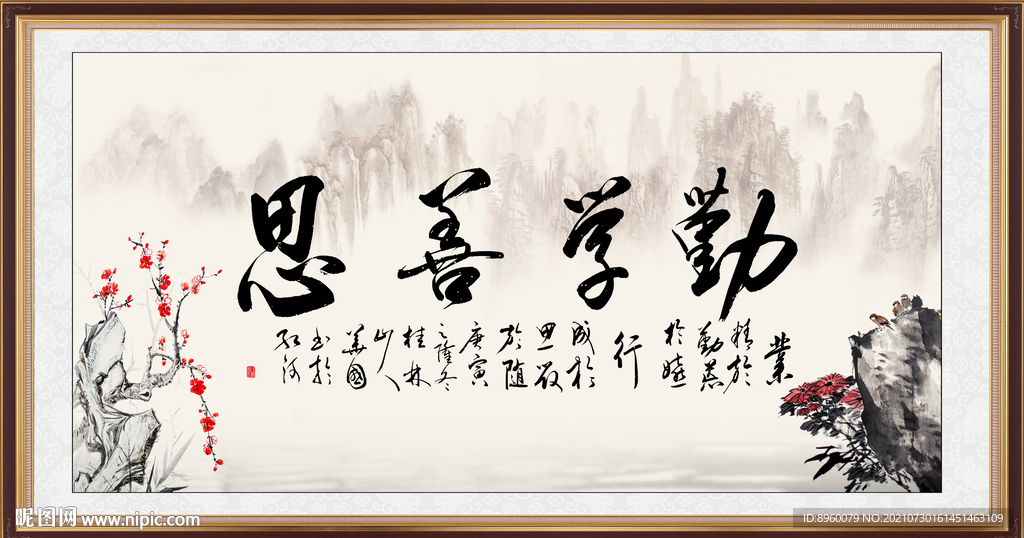 勤学善思
業
精於
勤荒
於嬉
行
成於
思毁
於随
庚寅
之隆冬
桂林
山人
華國
书於
昵图网 www.nipic.com
ID:8960079 NO:20210730161451463109